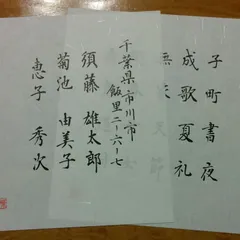 子町書夜
成歌夏礼
千葉県市川市
飯里二-六-七
須藤雄太郎
菊池由美子
恵子秀次